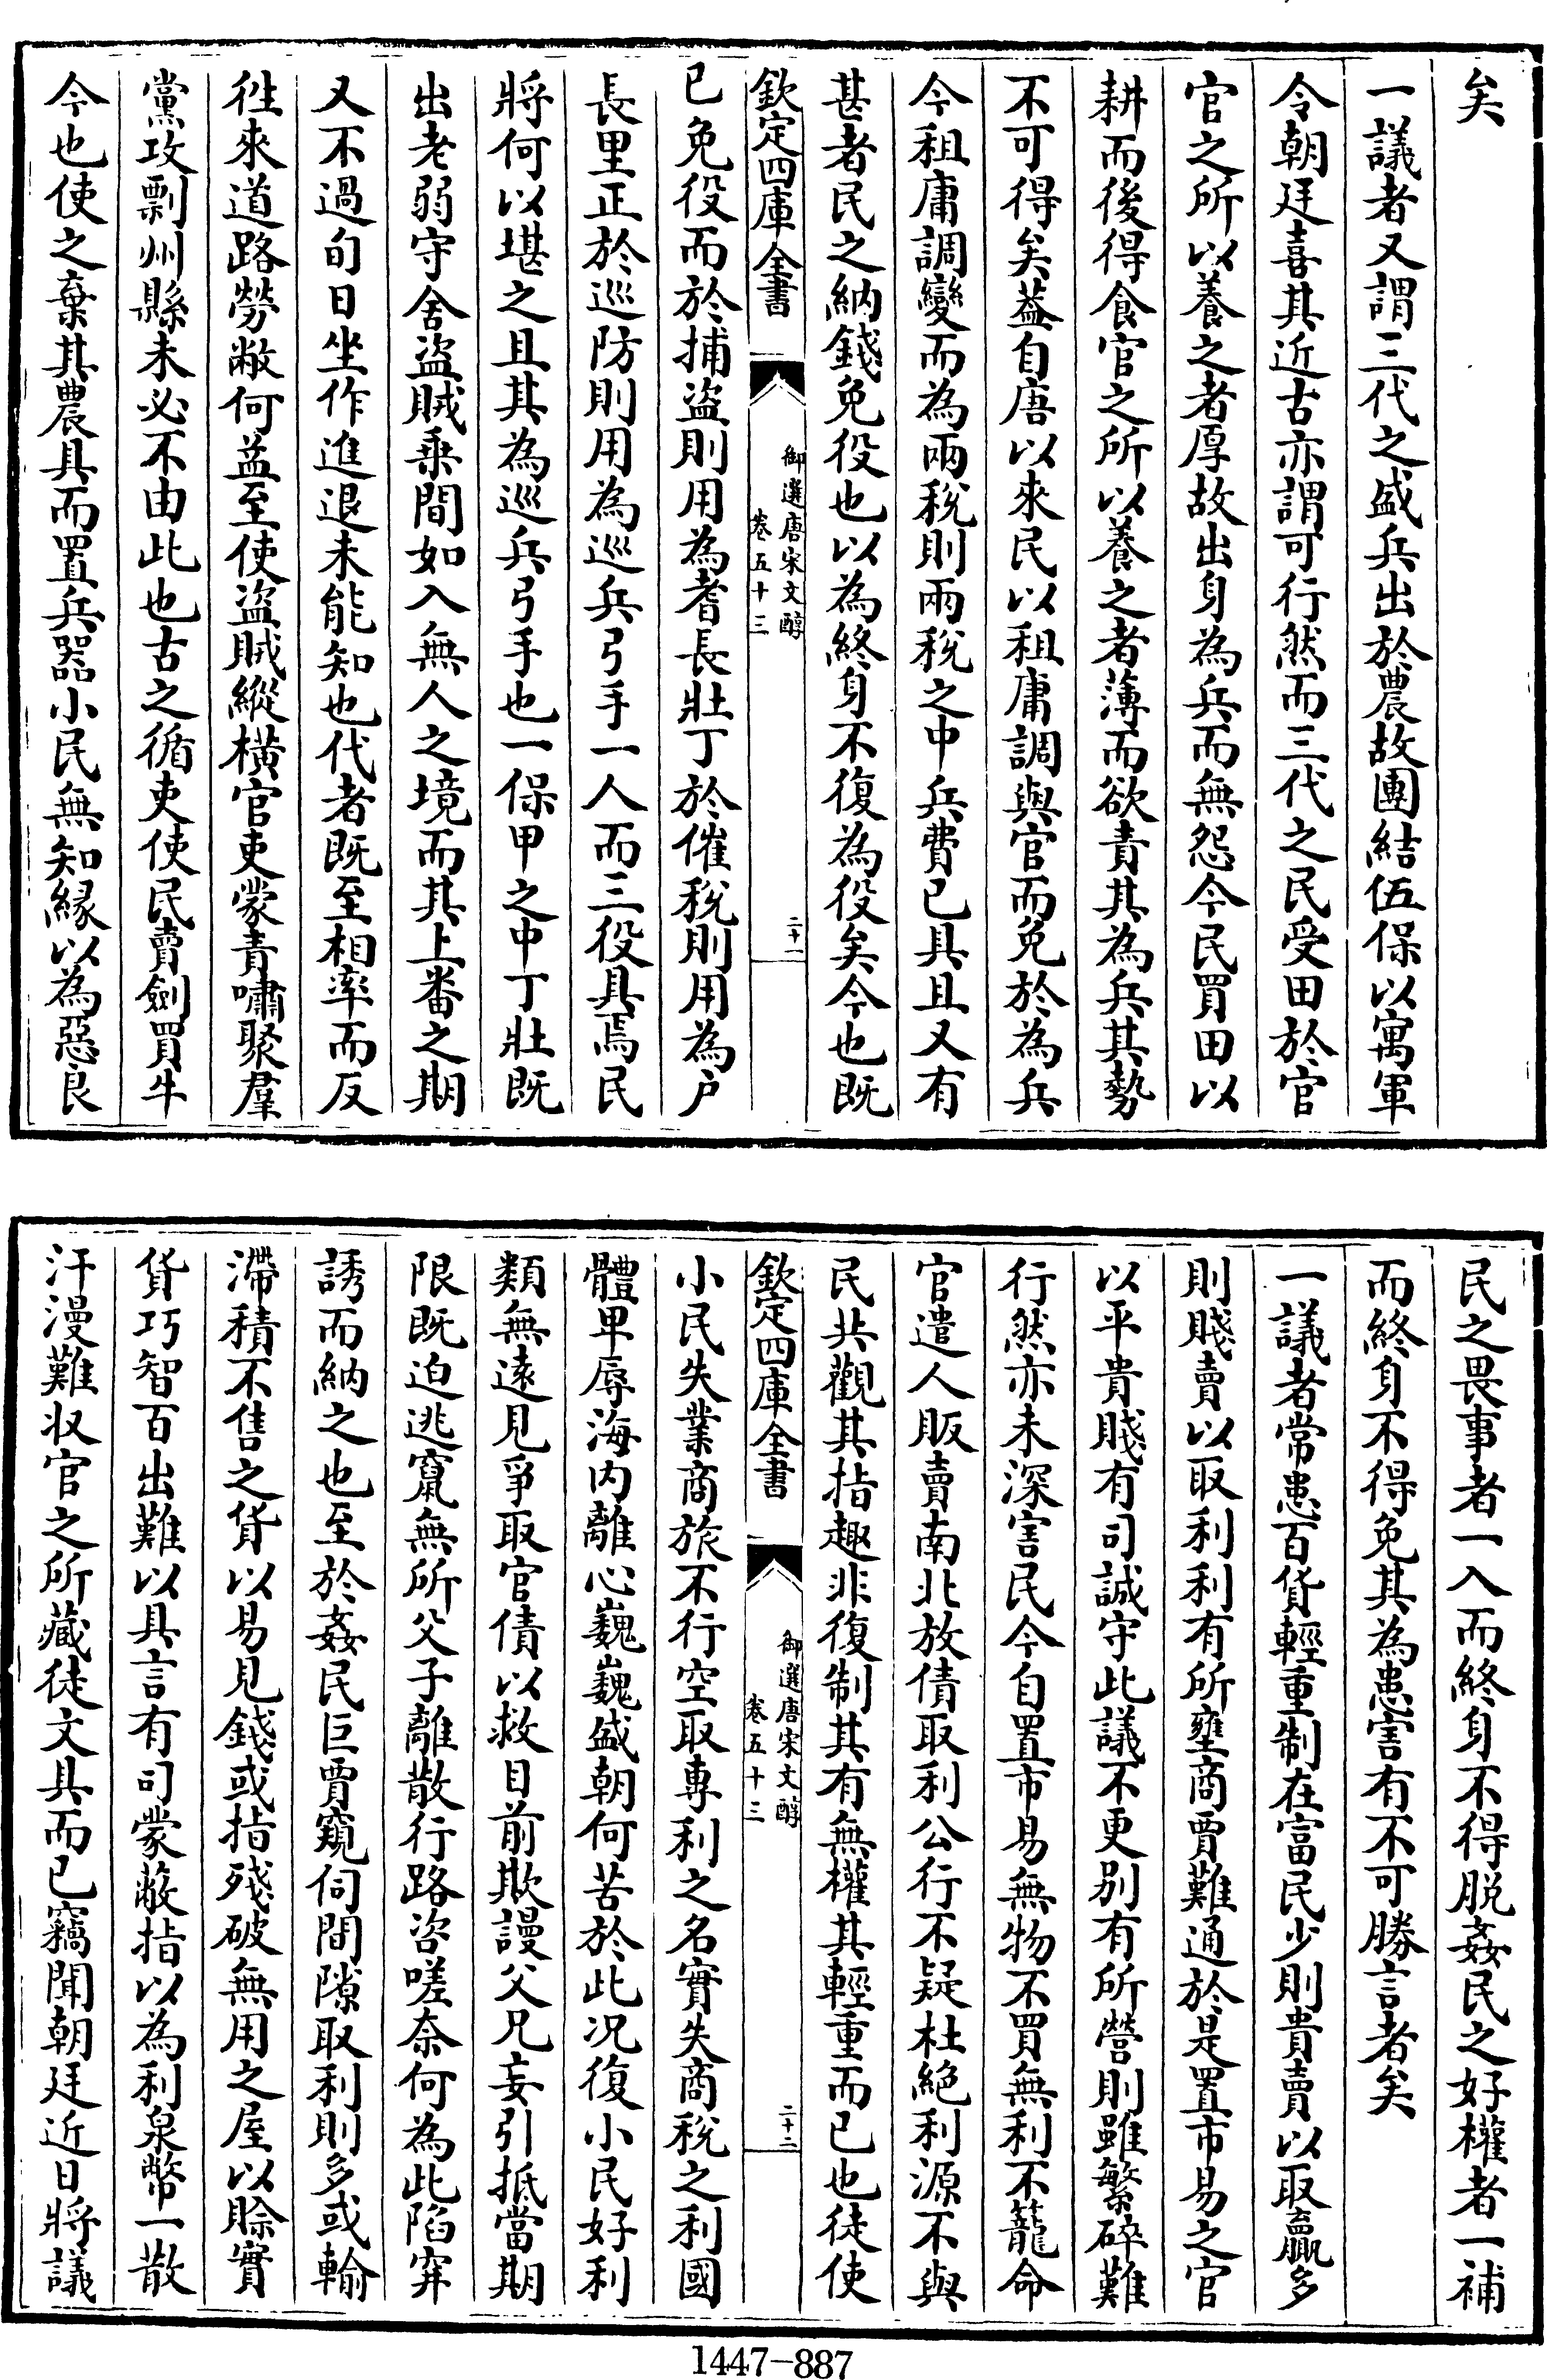 矣
一議者又謂三代之盛兵出於農故團結伍保以寓軍
令朝廷喜其近古亦謂可行然而三代之民受田於官
官之所以養之者厚故出身為兵而無怨今民買田以
耕而後得食官之所以養之者薄而欲責其為兵其勢
不可得矣葢自唐以來民以租庸調與官而免於為兵
今租庸調變而為兩稅則兩稅之中兵費已具且又有
甚者民之納錢免役也以為終身不復為役矣今也既
欽定四庫全書
御選唐宋文醇
卷五十三
二十一
已免役而於捕盜則用為耆長壯丁於催稅則用為户
長里正於巡防則用為巡兵弓手一人而三役具焉民
將何以堪之且其為巡兵弓手也一保甲之中丁壯既
出老弱守舍盜賊乗間如入無人之境而其上番之期
又不過旬日坐作進退未能知也代者既至相率而反
徃來道路勞敝何益至使盜賊縱橫官吏蒙責嘯聚羣
黨攻剽州縣未必不由此也古之循吏使民賣劍買牛
今也使之棄其農具而置兵器小民無知縁以為惡良
民之畏事者一入而終身不得脱姦民之好權者一補
而終身不得免其為患害有不可勝言者矣
一議者常患百貨輕重制在富民少則貴賣以取贏多
則賤賣以取利利有所壅商賈難通於是置市易之官
以平貴賤有司誠守此議不更别有所營則雖繁碎難
行然亦未深害民今自置市易無物不買無利不籠命
官遣人販賣南北放債取利公行不疑杜絶利源不與
民共觀其指趣非復制其有無權其輕重而已也徒使
欽定四庫全書
御選唐宋文醇
卷五十三
二十二
小民失業商旅不行空取專利之名實失商稅之利國
體卑辱海内離心巍巍盛朝何苦於此况復小民好利
類無逺見爭取官債以救目前欺謾父兄妄引抵當期
限既迫逃竄無所父子離散行路咨嗟奈何為此陷穽
誘而納之也至於姦民巨賈窺伺間隙取利則多或輸
滯積不售之貨以易見錢或指殘破無用之屋以賒實
貨巧智百出難以具言有司蒙蔽指以為利泉幣一散
汗漫難收官之所藏徒文具而已竊聞朝廷近日將議
1447-887